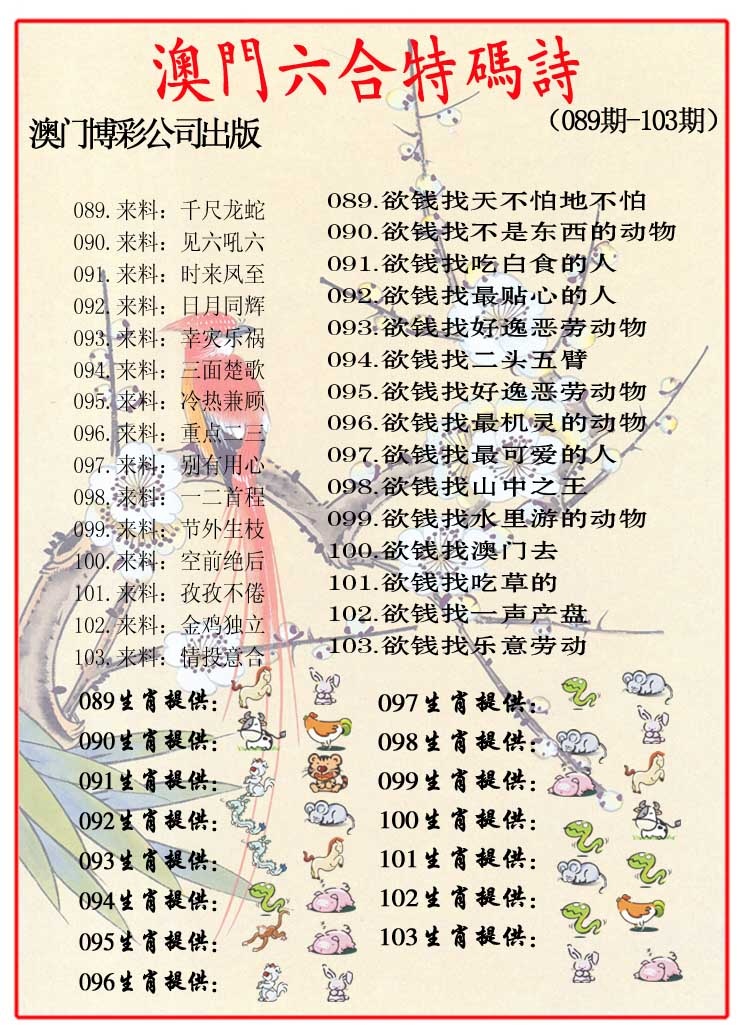 澳門六合特碼詩
澳门博彩公司出版
（089期-103期）
089.来料：千尺龙蛇
090.来料：见六吼六
091.来料：时来凤至
092.来料：日月同辉
093.来料：幸灾乐祸
094.来料：三面楚歌
095.来料：冷热兼顾
096.来料：重点二三
097.来料：别有用心
098.来料：一二首程
099.来料：节外生枝
100.来料：空前绝后
101.来料：孜孜不倦
102.来料：金鸡独立
103.来料：情投意合
089.欲钱找天不怕地不怕
090.欲钱找不是东西的动物
091.欲钱找吃白食的人
092.欲钱找最贴心的人
093.欲钱找好逸恶劳动物
094.欲钱找二头五臂
095.欲钱找好逸恶劳动物
096.欲钱找最机灵的动物
097.欲钱找最可爱的人
098.欲钱找山中之王
099.欲钱找水里游的动物
100.欲钱找澳门去
101.欲钱找吃草的
102.欲钱找一声产盘
103.欲钱找乐意劳动
089生肖提供：
090生肖提供：
091生肖提供：
092生肖提供：
093生肖提供：
094生肖提供：
095生肖提供：
096生肖提供：
097生肖提供：
098生肖提供：
099生肖提供：
100生肖提供：
101生肖提供：
102生肖提供：
103生肖提供：